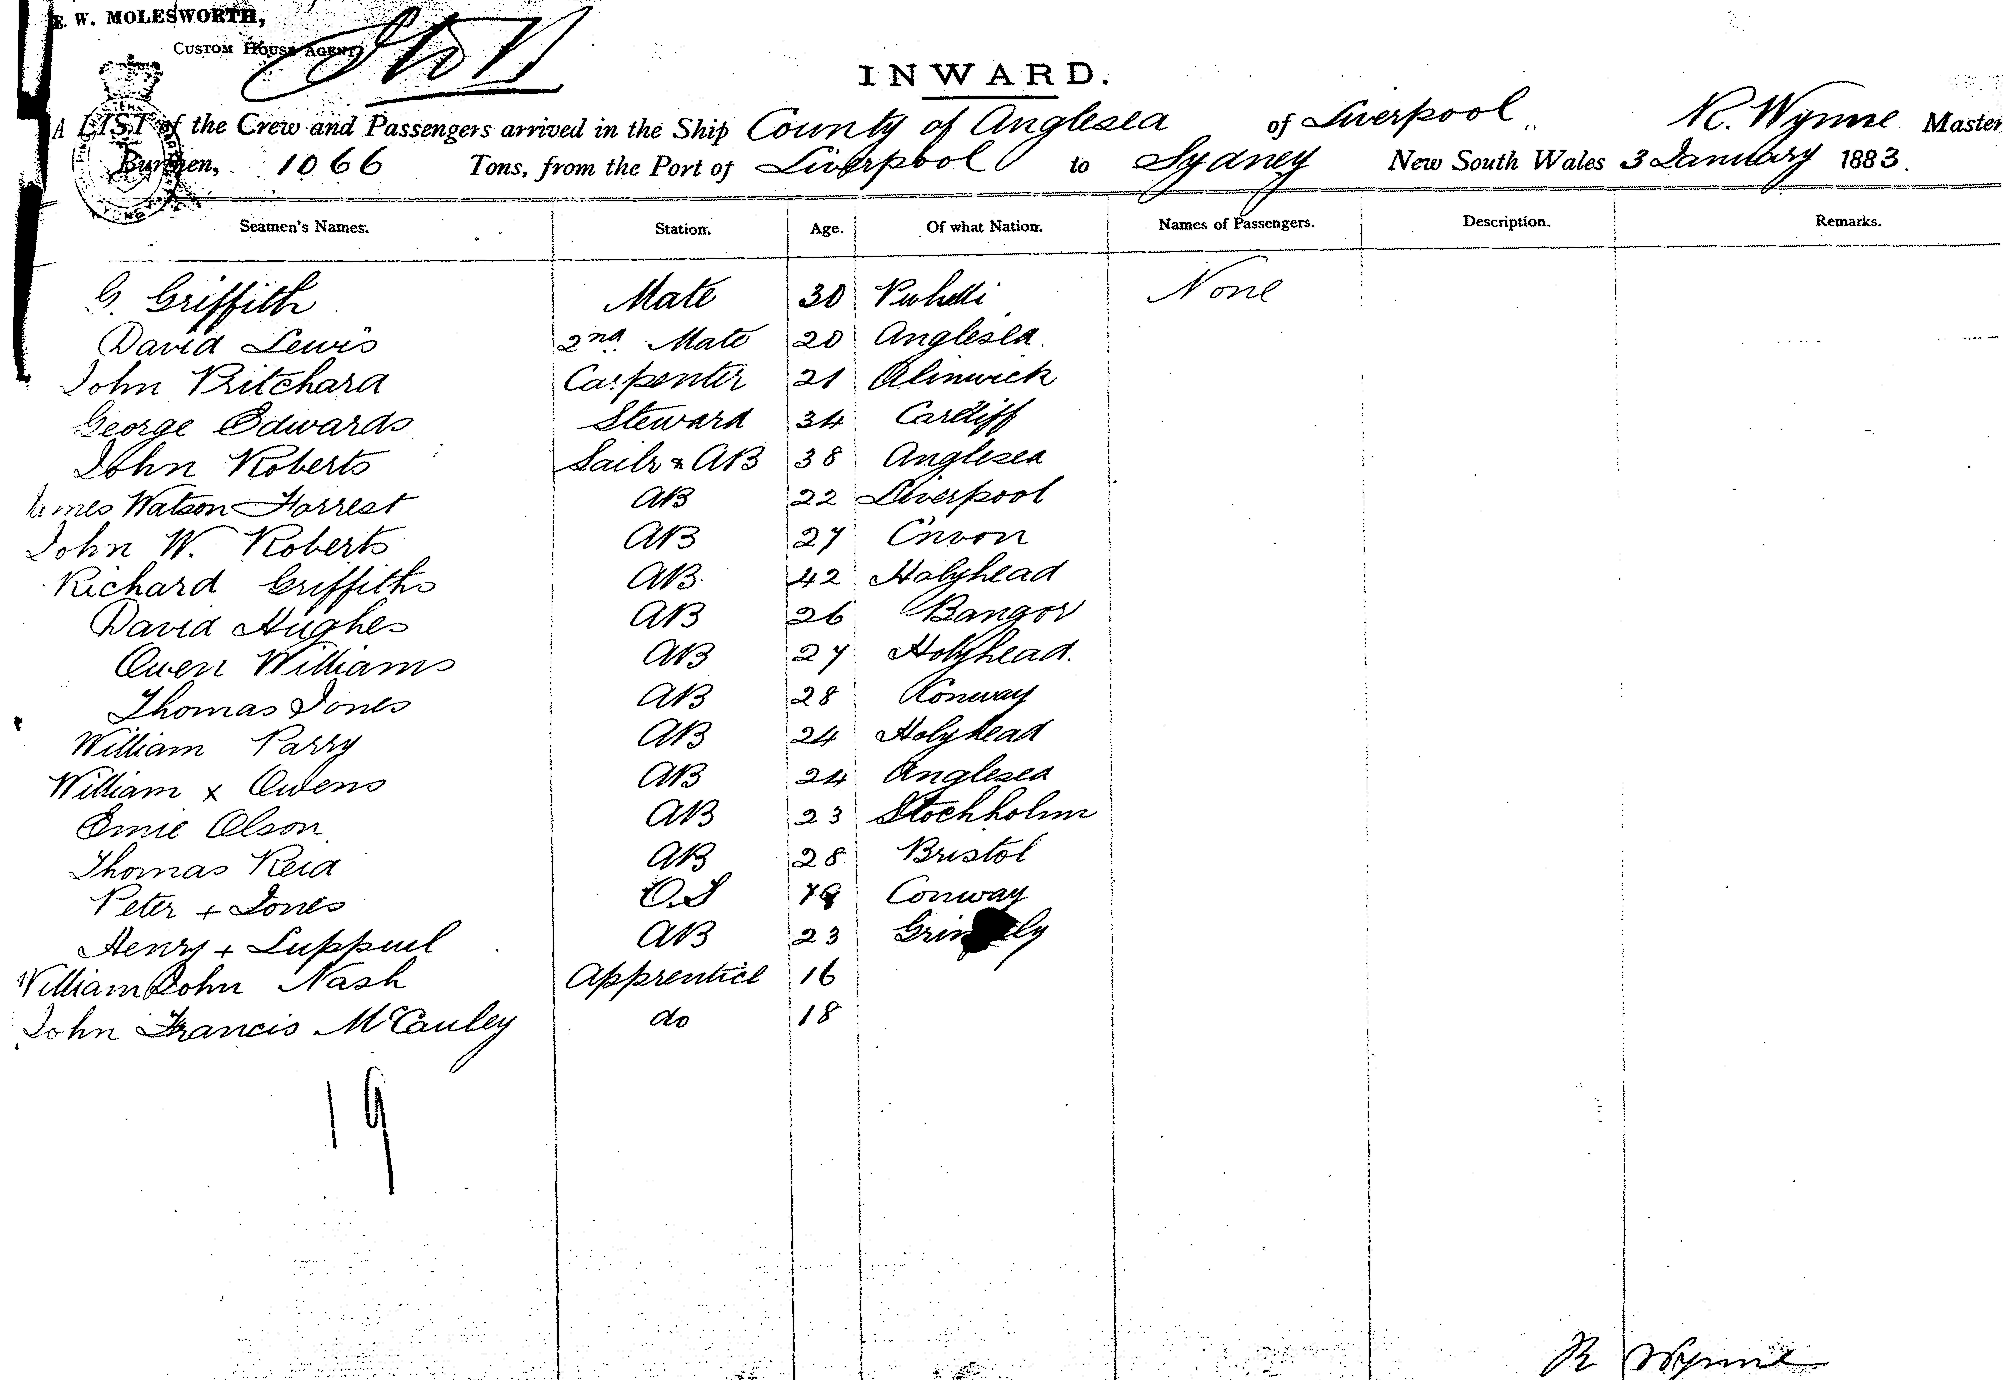 E. W. MOLESWORTH,
CUSTOM HOUSE AGENT
INWARD.
A LIST of the Crew and Passengers arrived in the Ship County of Anglesea of Liverpool R. Wynne Master
Burthen, 1066 Tons, from the Port of Liverpool to Sydney New South Wales 3 January 1883.
Seamen's Names. Station. Age. Of what Nation. Names of Passengers. Description. Remarks.
G. Griffith Mate 30 Pwhelli None
David Lewis 2nd Mate 20 Anglesea.
John Pritchard Carpenter 21 Alinwick
George Edwards Steward 34 Cardiff
John Roberts Sailr & AB 38 Anglesea
James Watson Forrest AB 22 Liverpool
John W. Roberts AB 27 C'nvon
Richard Griffiths AB. 42 Holyhead
David Hughes AB 26 Bangor
Owen Williams AB 27 Holyhead.
Thomas Jones AB 28 Conway
William Parry AB 24 Holyhead
William x Owens AB 24 Anglesea
Emie Olson AB 23 Stockholm
Thomas Reid AB 28 Bristol
Peter + Jones O.S 19 Conway
Henry + AB 23
William John Nash Apprentice 16
John Francis McCauley do 18
19
R Wynne